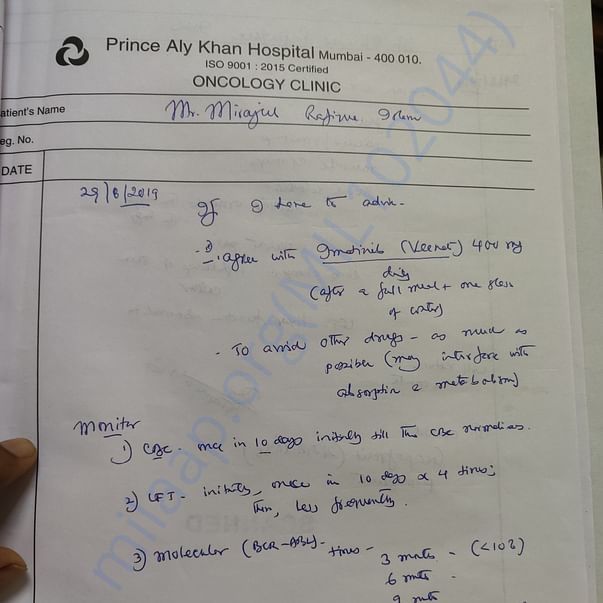 Prince Aly Khan Hospital Mumbai - 400 010.
ISO 9001 : 2015 Certified
ONCOLOGY CLINIC
atient's Name Mr. Mirajul
eg. No.
DATE
29/8/2019 If I have to advise -
- I agree with Imatinib (Veenat) 400 mg
daily
(after a full meal + one glass
of water)
- To avoid other drugs - as much as
possible (may interfere with
absorption & metabolism)
Monitor
1) CBC - once in 10 days initially till the CBC normalises.
2) LFT - initially, once in 10 days x 4 times;
then, less frequently.
3) Molecular (BCR-ABL) - times - 3 mnts - (<10%)
6 mnts -
9 mnts
milaap.org(MIL 202044)